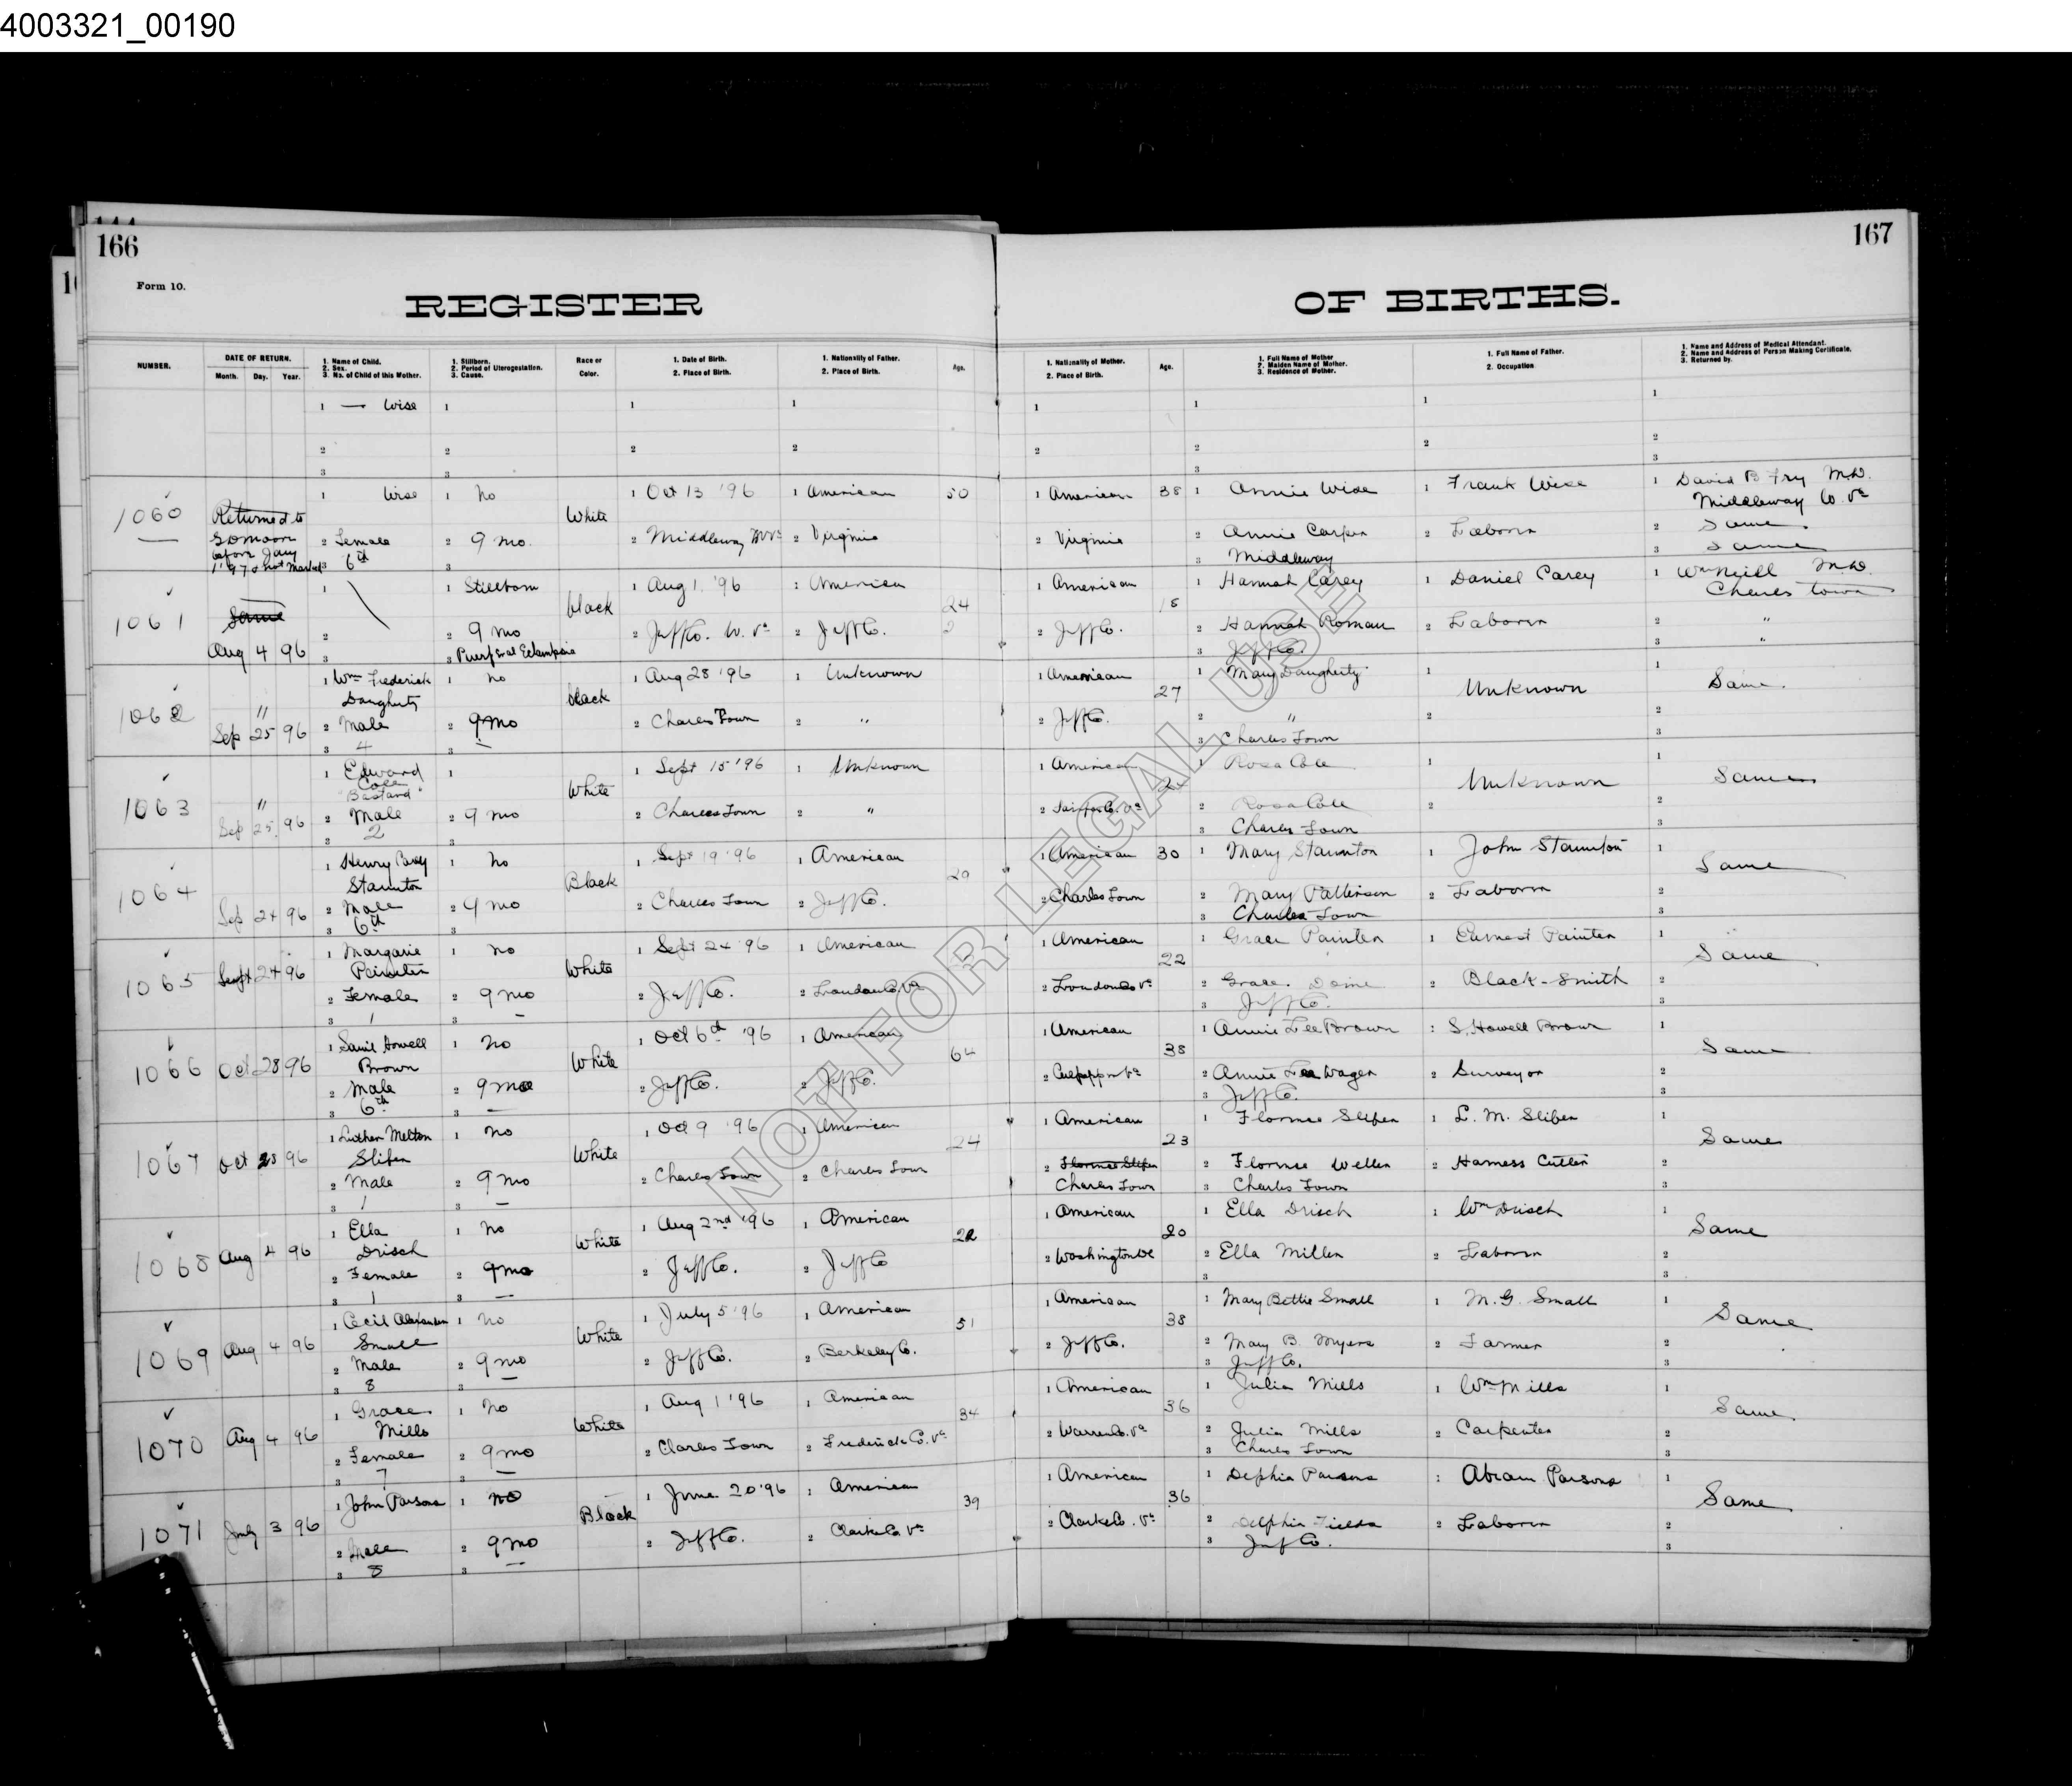 4003321_00190
166
Form 10.
REGISTER
NUMBER.
DATE OF RETURN.
Month. Day. Year.
1. Name of Child.
2. Sex.
3. No. of Child of this Mother.
1. Stillborn.
2. Period of Uterogestation.
3. Cause.
Race or
Color.
1. Date of Birth.
2. Place of Birth.
1. Nationality of Father.
2. Place of Birth.
Age.
1 — Wise 1 1 1
2 2 2 2
3 3
1060
Returned to
before Jany
1 Wise 1 No White 1 Oct 13 '96 1 American 50
2 Female 2 9 mo. 2 Middleway 2 Virginia
3 6th 3
1061
Same
Aug 4 96
1 1 Stillborn black 1 Aug 1. '96 1 American 24
2 2 9 mo 2 Jeff Co. W. Va 2 Jeff Co.
3 3 Puerperal Eclampsia
1062
"
Sep 25 96
1 Wm Frederick 1 no black 1 Aug 28 '96 1 Unknown
Daugherty
2 Male 2 9 mo 2 Charles Town 2 "
3 4 3 —
1063
"
Sep 25 96
1 Edward 1 White 1 Sept 15 '96 1 Unknown
Cole
"Bastard"
2 Male 2 9 mo 2 Charles Town 2 "
3 2 3
1064
Sep 24 96
1 Henry 1 No Black 1 Sept 19 '96 1 American 20
Staunton
2 Male 2 9 mo 2 Charles Town 2 Jeff Co.
3 6th 3
1065 Sept 24 96
1 Margarie 1 no White 1 Sept 24 '96 1 American
Painter
2 Female 2 9 mo 2 Jeff Co. 2 Loudon Co. Va
3 1 3 —
1066 Oct 28 96
1 Saml Howell 1 No White 1 Oct 6th '96 1 American 64
Brown
2 Male 2 9 mo 2 Jeff Co. 2 Jeff Co.
3 6th 3 —
1067 Oct 28 96
1 Luther Melton 1 no White 1 Oct 9 '96 1 American 24
Slifer
2 Male 2 9 mo 2 Charles Town 2 Charles Town
3 1 3 —
1068 Aug 4 96
1 Ella 1 No White 1 Aug 2nd '96 1 American 22
Drisch
2 Female 2 9 mo 2 Jeff Co. 2 Jeff Co
3 1 3 —
1069 Aug 4 96
1 Cecil 1 No White 1 July 5 '96 1 American 51
Small
2 Male 2 9 mo 2 Jeff Co. 2 Berkeley Co.
3 8 3 —
1070 Aug 4 96
1 Grace 1 No White 1 Aug 1 '96 1 American 34
Mills
2 Female 2 9 mo 2 Charles Town 2 Frederick Co. Va
3 7 3 —
1071 July 3 96
1 John Parsons 1 no Black 1 June 20 '96 1 American 39
2 Male 2 9 mo 2 Jeff Co. 2 Clarke Co. Va
3 8 3 —
167
OF BIRTHS.
1. Nationality of Mother.
2. Place of Birth.
Age.
1. Full Name of Mother
2. Maiden Name of Mother.
3. Residence of Mother.
1. Full Name of Father.
2. Occupation.
1. Name and Address of Medical Attendant.
2. Name and Address of Person Making Certificate.
3. Returned by.
1 1 1 1
2 2 2 2
3 3
1 American 38 1 Annie Wise 1 Frank Wise 1 David B Fry M.D.
Middleway W. Va
2 Virginia 2 Annie Carper 2 Laborer 2 Same
3 Middleway 3 Same
1 American 18 1 Hannah Carey 1 Daniel Carey 1 Wm Neill M.D.
Charles Town
2 Jeff Co. 2 Hannah Roman 2 Laborer 2 "
3 Jeff Co. 3 "
1 American 27 1 Mary Daugherty 1 Unknown 1 Same.
2 Jeff Co. 2 " 2 2
3 Charles Town 3
1 American 1 Rosa Cole 1 Unknown 1 Same
2 Fairfax Co. Va 2 Rosa Cole 2 2
3 Charles Town 3
1 American 30 1 Mary Staunton 1 John Staunton 1 Same
2 Charles Town 2 Mary Patterson 2 Laborer 2
3 Charles Town 3
1 American 22 1 Grace Painter 1 Earnest Painter 1 Same
2 Loudon Co Va 2 Grace 2 Black-Smith 2
3 Jeff Co. 3
1 American 38 1 Annie Lee Brown 1 S. Howell Brown 1 Same
2 Culpepper Va 2 Annie Lee Wager 2 Surveyor 2
3 Jeff Co. 3
1 American 23 1 Florence Slifer 1 L. M. Slifer 1 Same
2 Florence Slifer 2 Florence Weller 2 Harness Cutter 2
Charles Town 3 Charles Town 3
1 American 20 1 Ella Drisch 1 Wm Drisch 1 Same
2 Washington DC 2 Ella Miller 2 Laborer 2
3 3
1 American 38 1 Mary Bettie Small 1 M. G. Small 1 Same
2 Jeff Co. 2 Mary B. Myers 2 Farmer 2
3 Jeff Co. 3
1 American 36 1 Julia Mills 1 Wm Mills 1 Same
2 Warren Co. Va 2 Julia Mills 2 Carpenter 2
3 Charles Town 3
1 American 36 1 Delphia Parsons 1 Abram Parsons 1 Same
2 Clarke Co. Va 2 Delphia Fields 2 Laborer 2
3 Jeff Co. 3
NOT FOR LEGAL USE